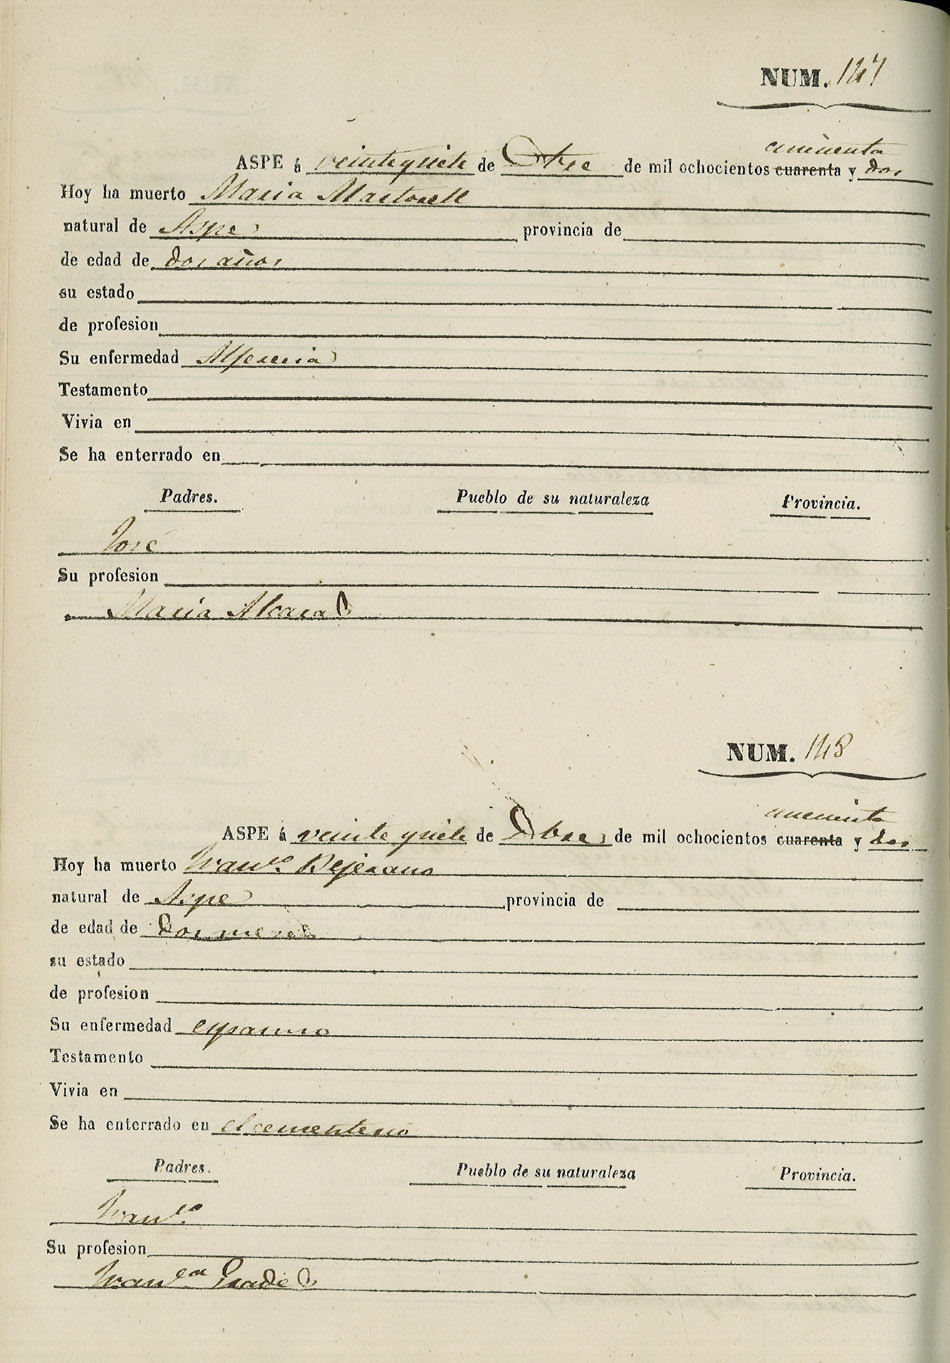 NUM. 147
cincuenta
ASPE á veintequiete de Otre de mil ochocientos cuarenta y dos
Hoy ha muerto Maria Martorell
natural de Aspe provincia de
de edad de dos años
su estado
de profesion
Su enfermedad Alferecia
Testamento
Vivia en
Se ha enterrado en
Padres. Pueblo de su naturaleza Provincia.
José
Su profesion
Maria Alcara
NUM. 148
cincuenta
ASPE á veinte quiete de de mil ochocientos cuarenta y dos
Hoy ha muerto Franco. Bejerano
natural de Aspe provincia de
de edad de Dos meses
su estado
de profesion
Su enfermedad espasmo
Testamento
Vivia en
Se ha enterrado en el cementerio
Padres. Pueblo de su naturaleza Provincia.
Franco
Su profesion
Franca Prade